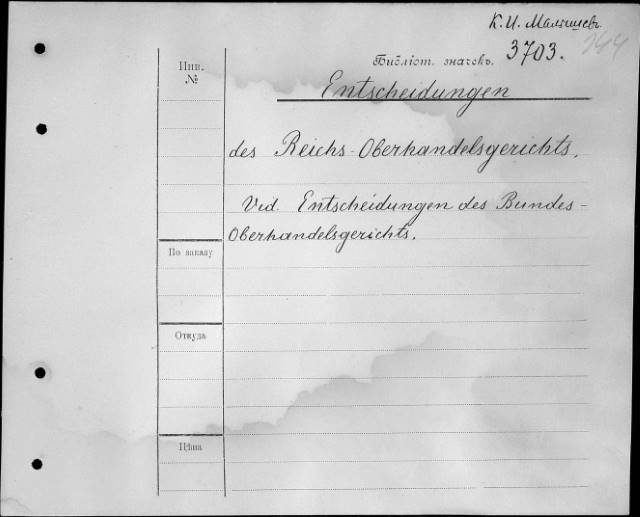 К. И. Малышевъ
Библіот. значекъ. 3703.
Инв.
№
Entscheidungen
des Reichs-Oberhandelsgerichts.
Vid. Entscheidungen des Bundes-
Oberhandelsgerichts.
По заказу
Откуда
Цѣна